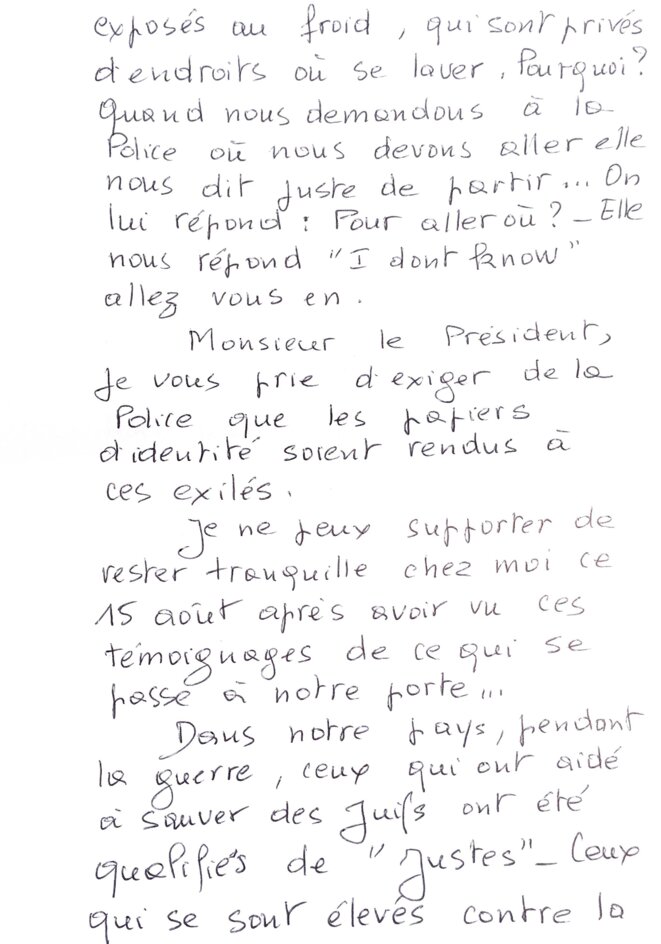 exposés au froid, qui sont privés
d'endroits où se laver. Pourquoi?
Quand nous demandons à la
Police où nous devons aller elle
nous dit juste de partir... On
lui répond : Pour aller où? _ Elle
nous répond "I dont know"
allez vous en.
Monsieur le Président,
Je vous prie d'exiger de la
Police que les papiers
d'identité soient rendus à
ces exilés.
Je ne peux supporter de
rester tranquille chez moi ce
15 août après avoir vu ces
témoignages de ce qui se
passe à notre porte...
Dans notre pays, pendant
la guerre, ceux qui ont aidé
à sauver des Juifs ont été
qualifiés de "Justes" _ Ceux
qui se sont élevés contre la